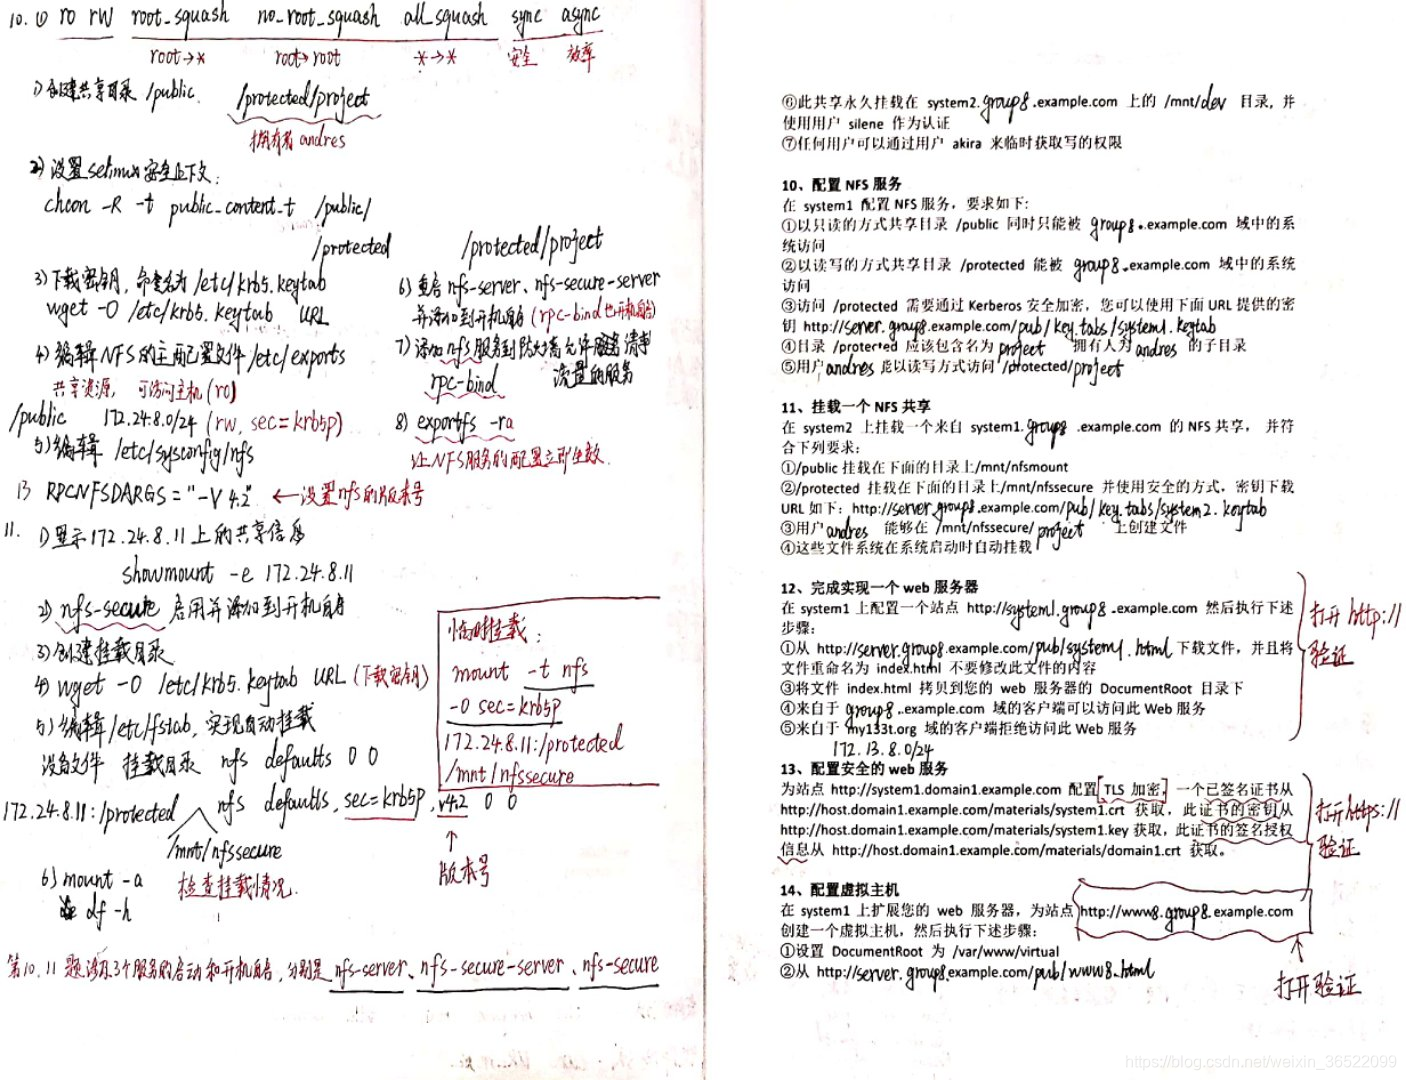 10. ① ro rw root_squash no_root_squash all_squash sync async
root→* root→root *→* 安全 效率
1) 创建共享目录 /public. /protected/project
拥有者 andres
2) 设置selinux安全上下文:
chcon -R -t public_content_t /public/
/protected /protected/project
3) 下载密钥, 命名为 /etc/krb5.keytab
wget -O /etc/krb5.keytab URL
4) 编辑NFS的主配置文件 /etc/exports
共享资源, 可访问主机 (ro)
/public 172.24.8.0/24 (rw, sec=krb5p)
5) 编辑 /etc/sysconfig/nfs
13 RPCNFSDARGS="-V 4.2" ←设置nfs的版本号
6) 重启 nfs-server、nfs-secure-server
并添加到开机自启 (rpc-bind也开机自启)
7) 添加nfs服务到防火墙允许服务清单
rpc-bind 流量的服务
8) exportfs -ra
让NFS服务的配置立即生效.
11. 1) 显示172.24.8.11上的共享信息
showmount -e 172.24.8.11
2) nfs-secure 启用并添加到开机自启
3) 创建挂载目录
4) wget -O /etc/krb5.keytab URL (下载密钥)
5) 编辑/etc/fstab, 实现自动挂载
设备文件 挂载目录 nfs defaults 0 0
172.24.8.11:/protected nfs defaults, sec=krb5p, v4.2 0 0
/mnt/nfssecure
版本号
6) mount -a 检查挂载情况.
df -h
临时挂载:
mount -t nfs
-O sec=krb5p
172.24.8.11:/protected
/mnt/nfssecure
第10. 11题涉及3个服务的启动和开机自启, 分别是 nfs-server、nfs-secure-server、nfs-secure
⑥此共享永久挂载在 system2.group8.example.com 上的 /mnt/dev 目录, 并
使用用户 silene 作为认证
⑦任何用户可以通过用户 akira 来临时获取写的权限
10、配置 NFS 服务
在 system1 配置 NFS 服务，要求如下:
①以只读的方式共享目录 /public 同时只能被 group8.example.com 域中的系
统访问
②以读写的方式共享目录 /protected 能被 group8.example.com 域中的系统
访问
③访问 /protected 需要通过 Kerberos 安全加密，您可以使用下面 URL 提供的密
钥 http://server.group8.example.com/pub/key.tabs/system1.keytab
④目录 /protected 应该包含名为 project 拥有人为 andres 的子目录
⑤用户 andres 能以读写方式访问 /protected/project
11、挂载一个 NFS 共享
在 system2 上挂载一个来自 system1.group8.example.com 的 NFS 共享， 并符
合下列要求:
①/public 挂载在下面的目录上/mnt/nfsmount
②/protected 挂载在下面的目录上/mnt/nfssecure 并使用安全的方式，密钥下载
URL 如下：http://server.group8.example.com/pub/key.tabs/system2.keytab
③用户 andres 能够在 /mnt/nfssecure/project 上创建文件
④这些文件系统在系统启动时自动挂载
12、完成实现一个 web 服务器
在 system1 上配置一个站点 http://system1.group8.example.com 然后执行下述
步骤:
①从 http://server.group8.example.com/pub/system1.html 下载文件，并且将
文件重命名为 index.html 不要修改此文件的内容
③将文件 index.html 拷贝到您的 web 服务器的 DocumentRoot 目录下
④来自于 group8.example.com 域的客户端可以访问此 Web 服务
⑤来自于 my133t.org 域的客户端拒绝访问此 Web 服务
172.13.8.0/24
打开 http://
验证
13、配置安全的 web 服务
为站点 http://system1.domain1.example.com 配置 TLS 加密，一个已签名证书从
http://host.domain1.example.com/materials/system1.crt 获取，此证书的密钥从
http://host.domain1.example.com/materials/system1.key 获取，此证书的签名授权
信息从 http://host.domain1.example.com/materials/domain1.crt 获取。
打开https://
验证
14、配置虚拟主机
在 system1 上扩展您的 web 服务器，为站点 http://www8.group8.example.com
创建一个虚拟主机，然后执行下述步骤:
①设置 DocumentRoot 为 /var/www/virtual
②从 http://server.group8.example.com/pub/www8.html
打开验证
https://blog.csdn.net/weixin_36522099